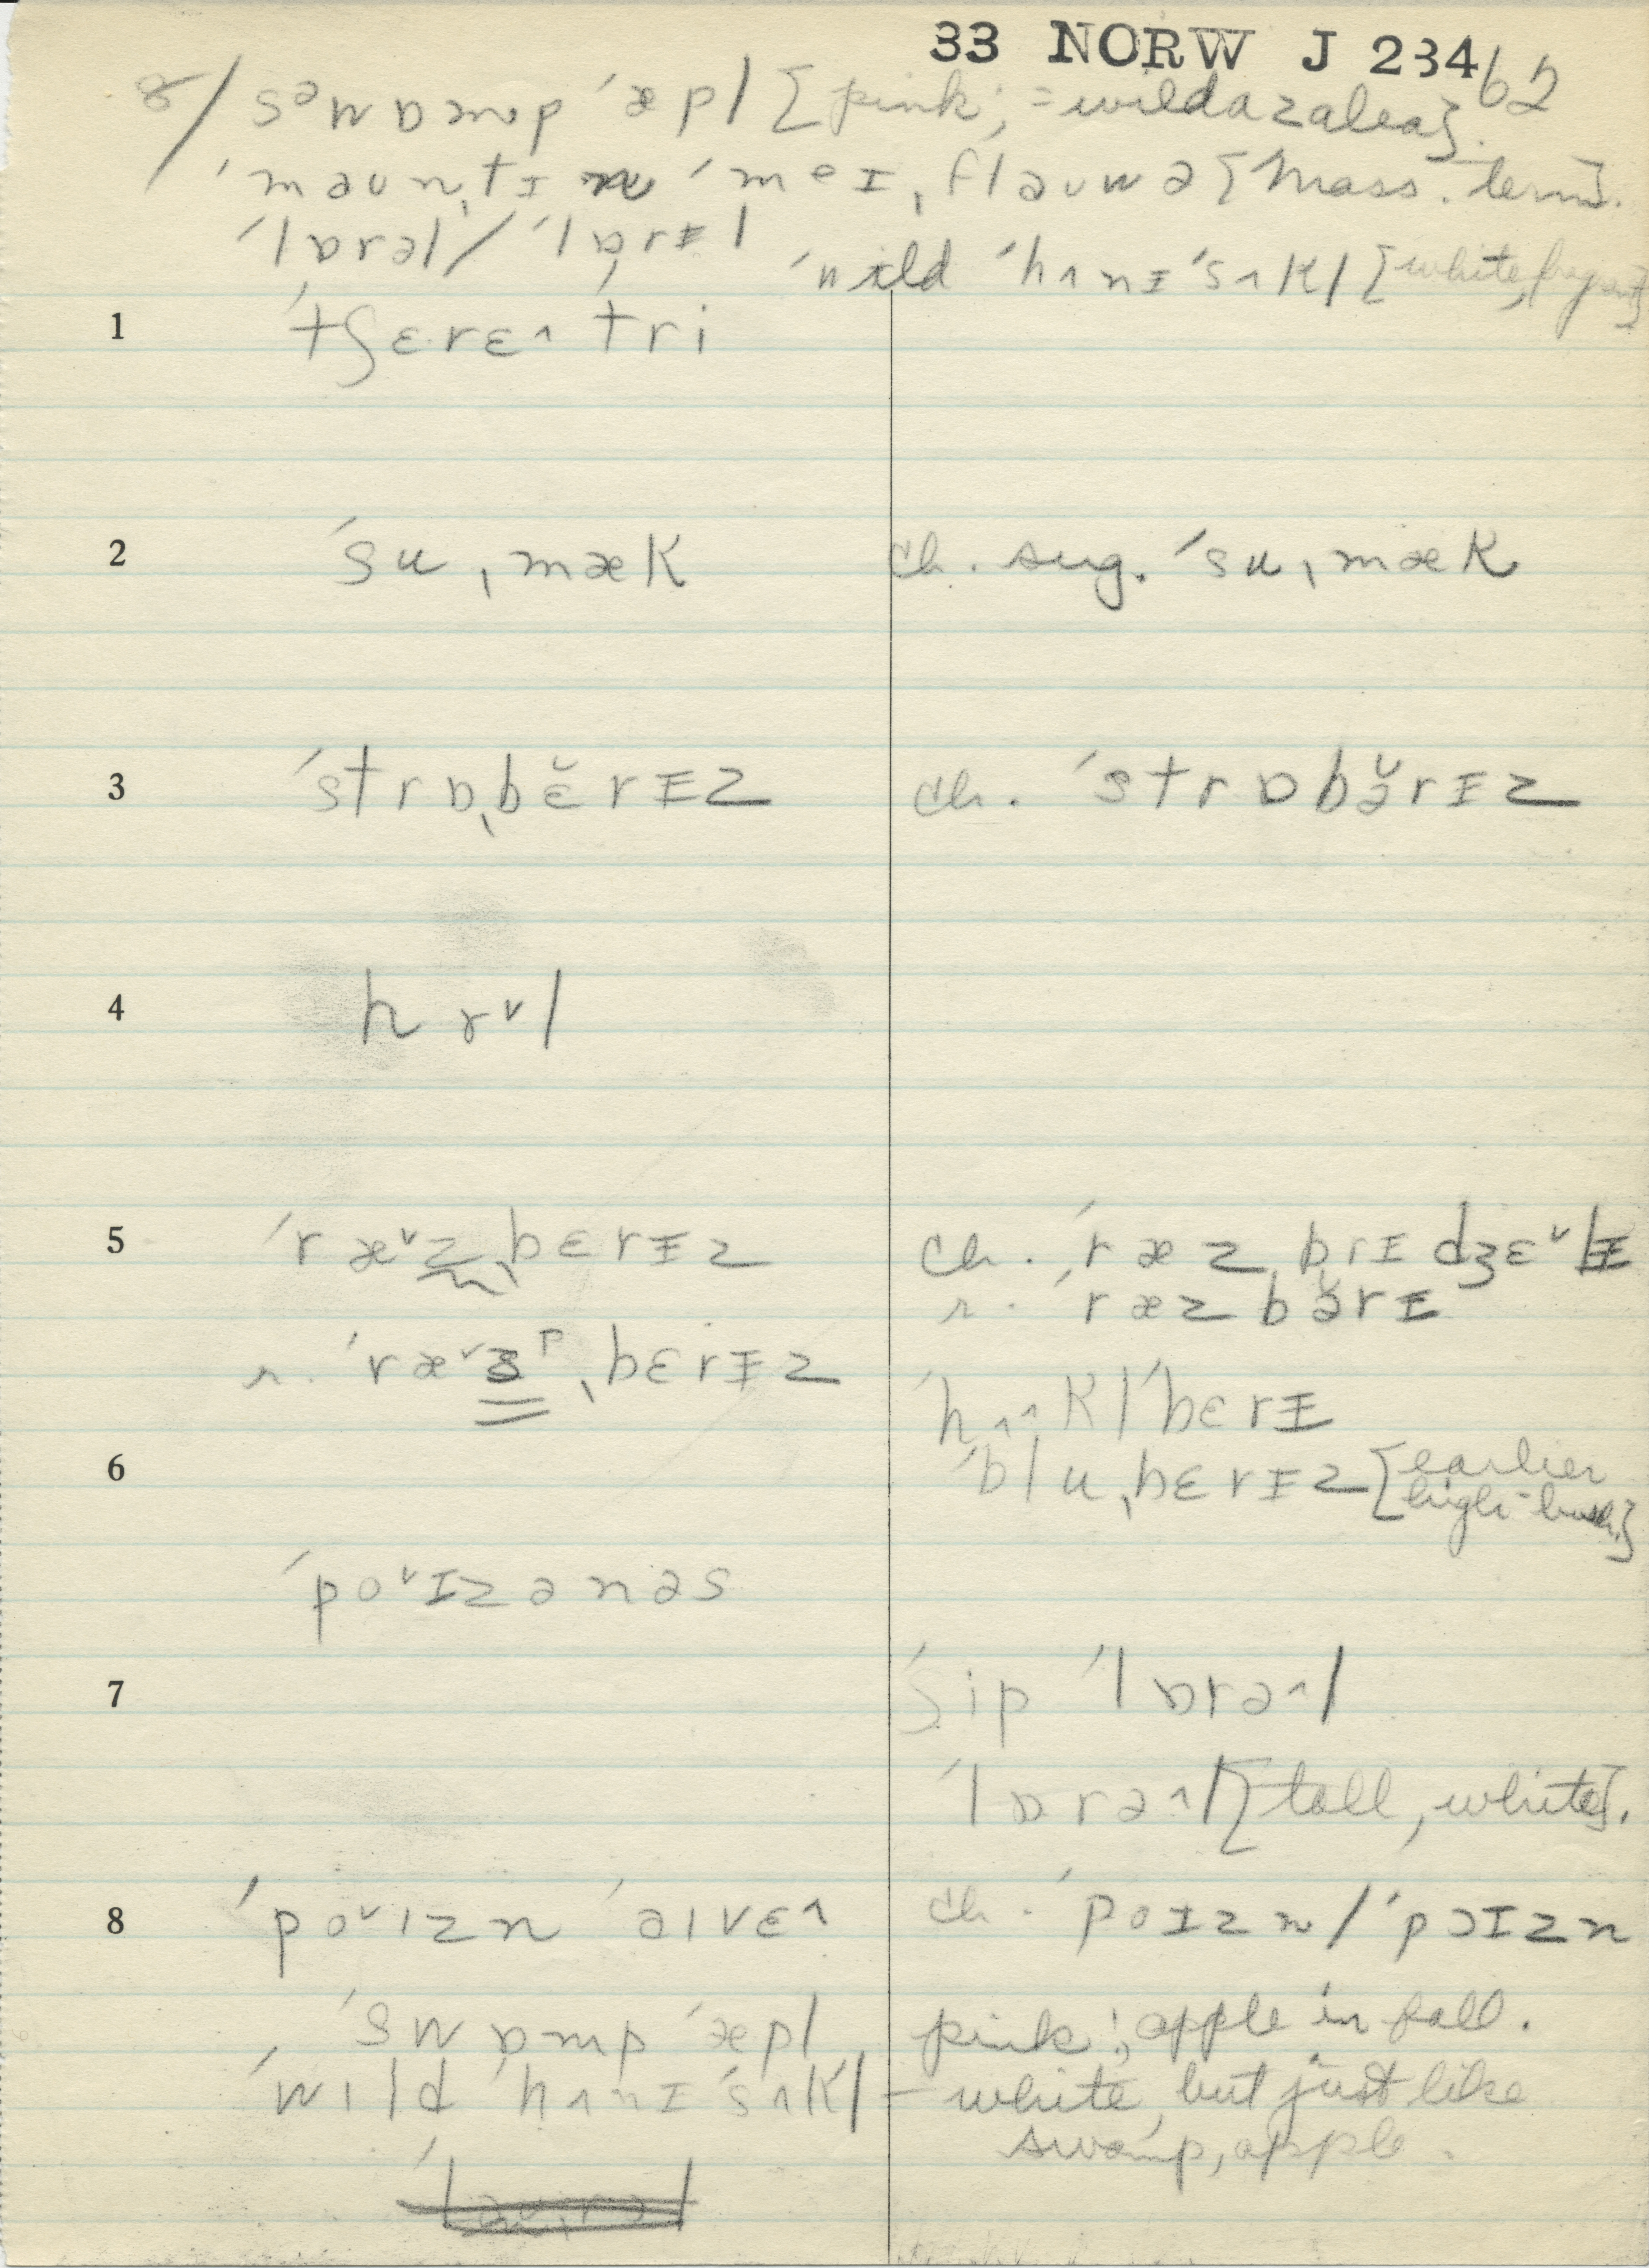 33 NORW J 234 62
8/ sᵊwɒmp ˈæpl [pink; = wild azalea].
ˈmaunˌtɪn ˈmeɪˌflauwə [Mass. term].
ˈlɒrəl / ˈlɒ̣rɪl
ˈwild ˈhʌnɪˈsʌkl [white,
1 ˈtʃɛrɛ^ tri
2 ˈsuˌmæk ch. sug. ˈsuˌmæk
3 ˈstrɒˌbɛ̆rɪz ch. ˈstrɒbə̆rɪz
4 hɤᵛl
5 ˈræᵛzˌbɛrɪz ch. ˈræzˌbrɪ dʒɛᵛlɪ
r. ˈræzbə̆rɪ
r. ˈræᵛsᵖˌbɛrɪz
ˈhʌ^kl ˈbɛrɪ
6 ˈbluˌbɛrɪz [earlier
high-bush]
ˈpoᵛɪzənəs
7 ˈʃip ˈlɒrə^l
ˈlɒrə^l [tall, white].
8 ˈpoᵛɪzn ˈaɪvɛ^ ch. ˈpoɪzn / ˈpɔɪzn
ˈswɒmp ˈæpl pink; apple in fall.
ˈwild ˈhʌnɪ ˈsʌkl – white, but just like
swamp, apple.